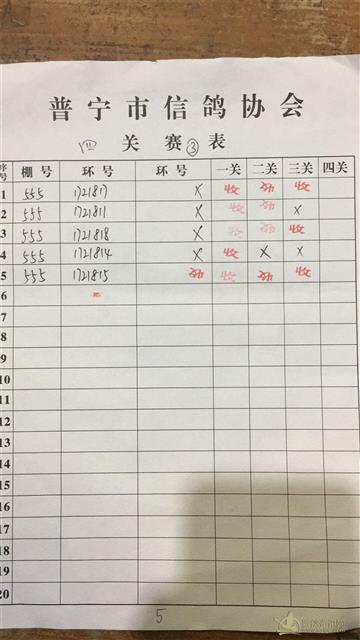 普宁市信鸽协会
四 关 赛 ③ 表
序号 棚号 环号 环号 一关 二关 三关 四关
1 555 1721817 X 收 收
2 555 1721811 X 收 X
3 555 1721818 X 收 收
4 555 1721814 X 收 X X
5 555 1721815 收 收
6
7
8
9
10
11
12
13
14
15
16
17
18
19
20
5